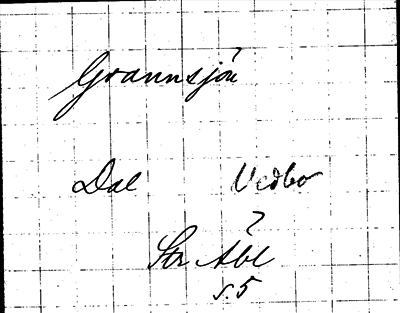 Grannsjön
Dal Vedbo
Stn Åbl
s. 5